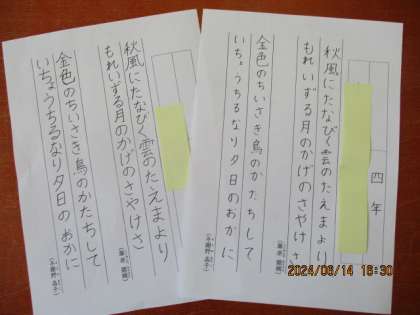 四年
秋風にたなびく雲のたえまより
もれいずる月のかげのさやけさ
金色のちいさき鳥のかたちして
いちょうちるなり夕日のおかに
秋風にたなびく雲のたえまより
もれいずる月のかげのさやけさ
金色のちいさき鳥のかたちして
いちょうちるなり夕日のおかに
2024/06/14 16:30